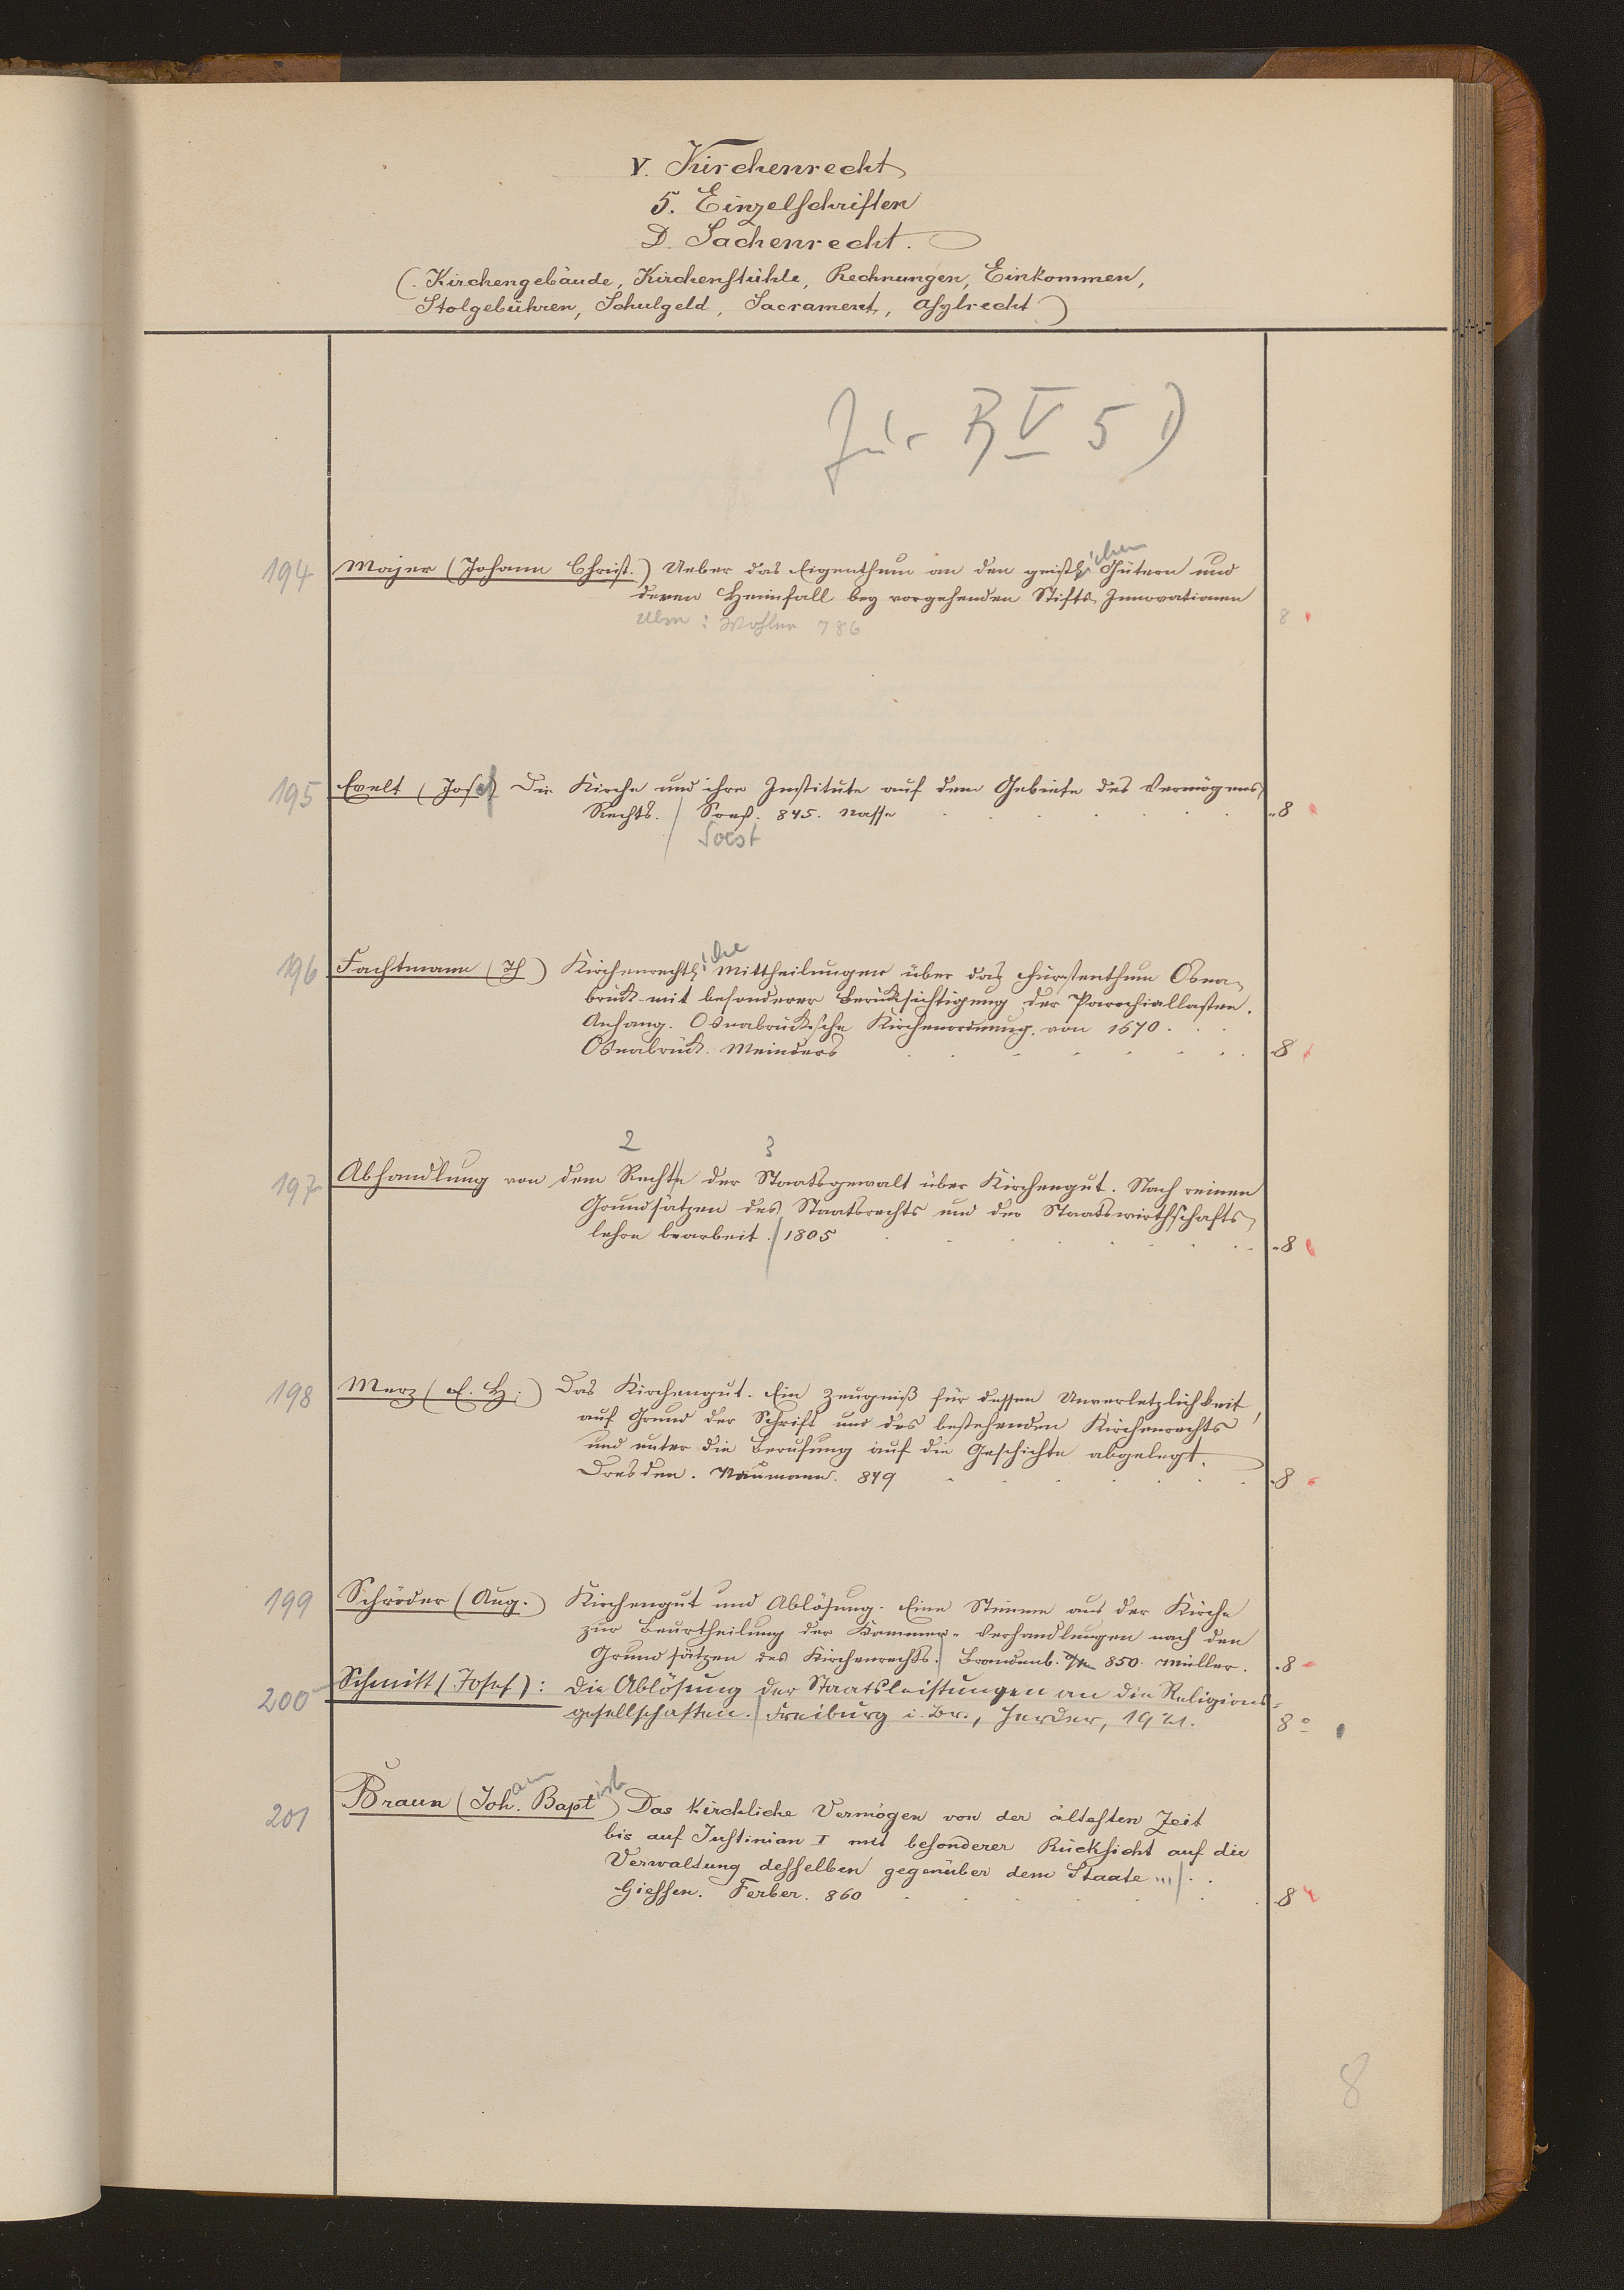 V. Kirchenrecht
5. Einzelschriften
D. Sachenrecht.
(Kirchengebäude, Kirchenstühle, Rechnungen, Einkommen,
Stolgebühren, Schulgeld, Sacrament, Asylrecht)
für R V 5 D
194 Majer (Johann Christ.) Ueber das Eigenthum an den geistlichen Gütern und
deren Heimfall bey vorgehenden Stifts Innovationen
Ulm: Wohler 786 8
195 Evelt (Josef) Die Kirche und ihre Institute auf dem Gebiete des Vermögens
Rechts. / Soest. 845. Nasse 8
Soest
196 Fachtmann (Th) Kirchenrechtliche Mittheilungen über das Fürstenthum Osna-
brück mit besonderer Berücksichtigung der Parochiallasten.
Anhang. Osnabrücksche Kirchenordnung. von 1670.
Osnabrück. Meinders 8
2 3
197 Abhandlung von dem Rechte der Staatsgewalt über Kirchengut. Nach reinen
Grundsätzen des Staatsrechts und der Staatswirthschafts
lehre bearbeit. / 1805 8
198 Merz (E. H.) Das Kirchengut. Ein Zeugniß für dessen Unverletzlichkeit,
auf Grund der Schrift und des bestehenden Kirchenrechts
und unter die Berufung auf die Geschichte abgelegt.
Dresden. Naumann. 849 8
199 Schröder (Aug.) Kirchengut und Ablösung. Eine Stimme aus der Kirche
zur Beurtheilung der Kammer-Verhandlungen nach den
Grundsätzen des Kirchenrechts. / Brandenb. 850. Müller. 8
200 Schmitt (Josef): Die Ablösung der Staatsleistungen an die Religions-
gesellschaften. / Freiburg i. Br., Herder, 1921. 8°
201 Braun (Johann Baptist) Das kirchliche Vermögen von der ältesten Zeit
bis auf Justinian I mit besonderer Rücksicht auf die
Verwaltung desselben gegenüber dem Staate ... /
Giessen. Ferber. 860 8
8